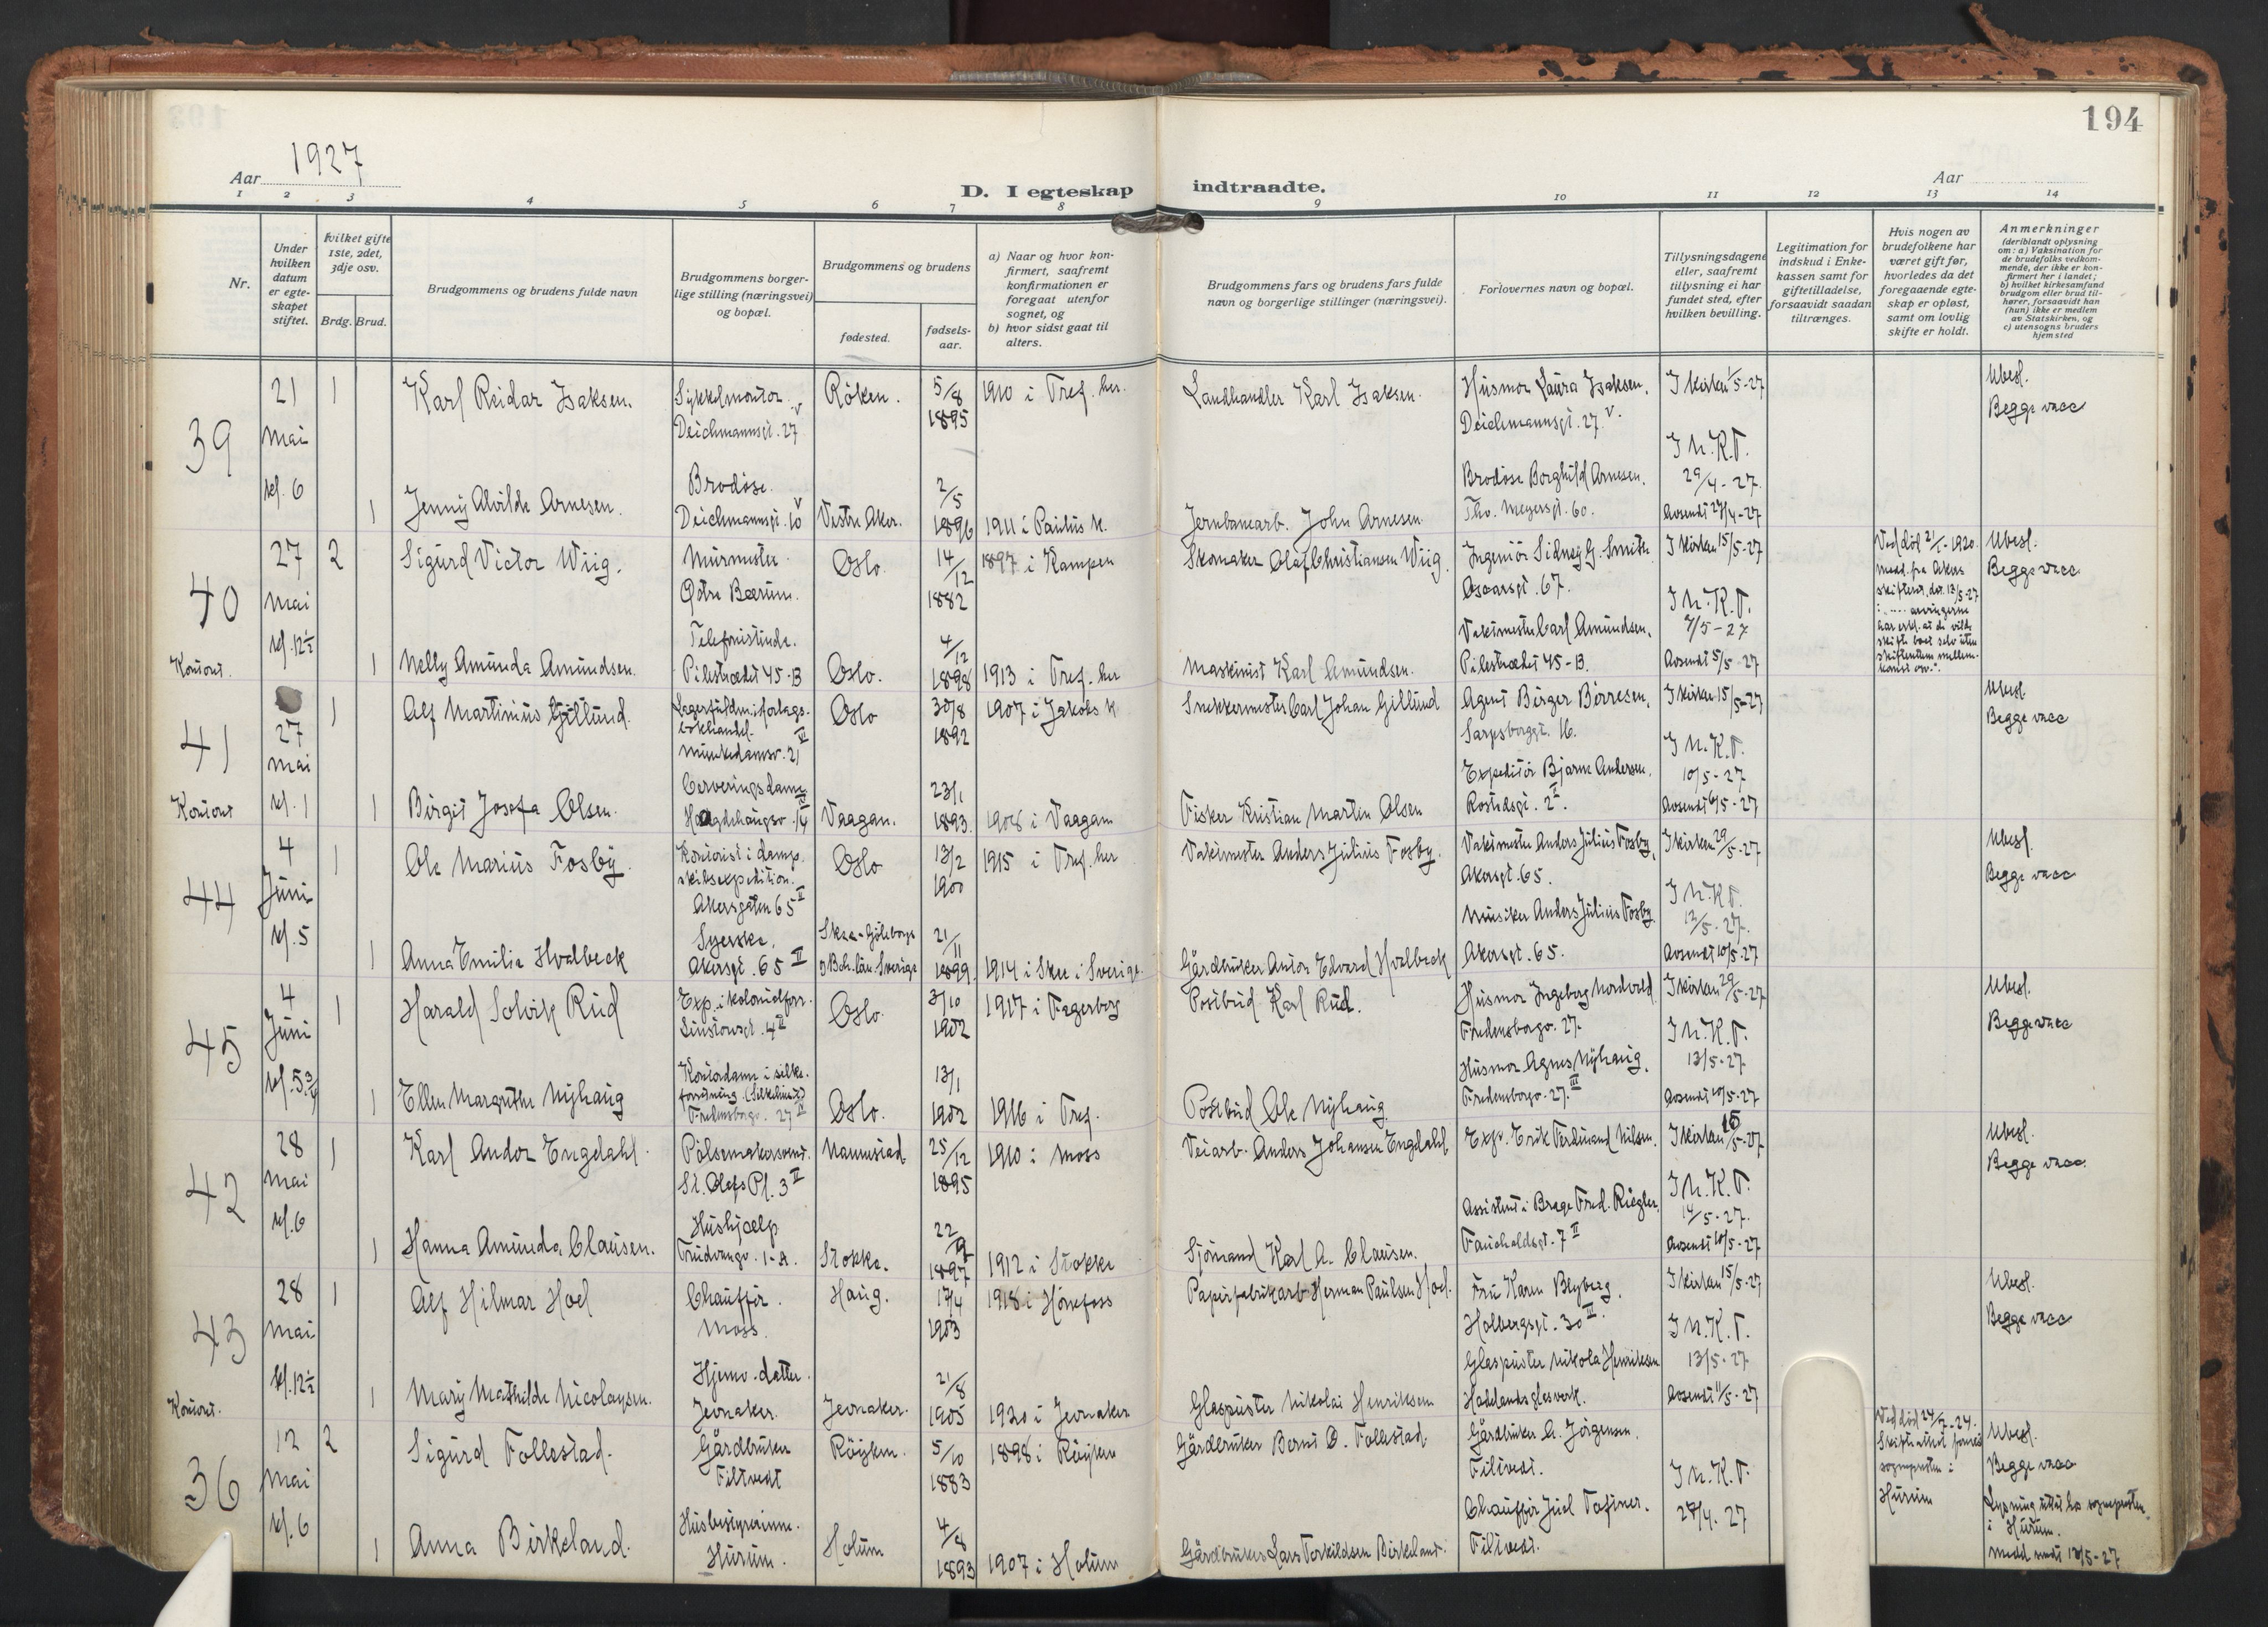 194
Aar 1927
D. I egteskap indtraadte.
Aar
1 2 3 4 5 6 7 8 9 10 11 12 13 14
Nr.
Under hvilken datum er egteskapet stiftet.
hvilket gifte 1ste, 2det, 3dje osv.
Brdg. Brud.
Brudgommens og brudens fulde navn
Brudgommens borgerlige stilling (næringsvei) og bopæl.
Brudgommens og brudens
fødested.
fødselsaar.
a) Naar og hvor konfirmert, saafremt konfirmationen er foregaat utenfor sognet, og
b) hvor sidst gaat til alters.
Brudgommens fars og brudens fars fulde navn og borgerlige stillinger (næringsvei).
Forlovernes navn og bopæl.
Tillysningsdagene eller, saafremt tillysning ei har fundet sted, efter hvilken bevilling.
Legitimation for indskud i Enkekassen samt for giftetilladelse, forsaavidt saadan tiltrænges.
Hvis nogen av brudefolkene har været gift før, hvorledes da det foregaaende egteskap er opløst, samt om lovlig skifte er holdt.
Anmerkninger
(deriblandt oplysning om: a) Vaksination for de brudefolks vedkommende, der ikke er konfirmert her i landet; b) hvilket kirkesamfund brudgom eller brud tilhører, forsaavidt han (hun) ikke er medlem av Statskirken, og c) utensogns bruders hjemsted
39
21 Mai kl. 6
1 Karl Reidar Isaksen. Sykkelmontør. Deichmannsgt. 27 V Røken. 5/8 1895 1910 i Tref. her. Landhandler Karl Isaksen. Husmor Laura Isaksen, Deichmannsgt. 27 V. I kirken 1/5-27 Ubesl. Begge vacc
I N.K.T. 29/4-27.
1 Jenny Alvilde Arnesen. Brodøse. Deichmannsgt. 10 V Vestre Aker. 2/5 1896 1911 i Paulus k. Jernbanearb. John Arnesen. Brodøse Borghild Arnesen. Tho. Meyersgt. 60. Avsendt 27/4-27
40
27 Mai kl. 12½
Kontoret.
2 Sigurd Victor Wiig. Murmester. Østre Bærum. Oslo. 14/12 1882 1897 i Kampen Skomaker Olaf Christiansen Wiig. Ingeniør Sidney G. Smith Oscarsgt. 67. I kirken 15/5-27 Ubesl. Begge vacc.
I N.K.T. 7/5-27
1 Nelly Amunda Amundsen. Telefonistinde. Pilestrædet 45-B Oslo. 4/12 1898 1913 i Tref. her Maskinist Karl Amundsen. Vaktmester Carl Amundsen, Pilestrædet 45-B. Avsendt 5/5-27
41
27 Mai kl. 1
Kontoret
1 Alf Martinius Gillund. Lagerfuldm. i forlagsbokhandel. Munkedamsv. 21 VI Oslo 30/8 1892 1907 i Jakobs k Snekkermester Carl Johan Gillund Agent Birger Børresen, Sarpsborggt. 16. I kirken 15/5-27 Ubesl. Begge vacc
I N.K.T. 10/5-27
1 Birgit Josefa Olsen. Serveringsdame Vaagan. 23/1 1893. 1908 i Vaagan Fisker Kristian Martin Olsen Expeditør Bjarne Andersen, Rostedsgt. 2 I. Avsendt 6/5-27
44
4 Juni kl. 5
1 Ole Marius Fosby. Kontorist i dampskibsexpedition. Akersgaten 65 II Oslo 13/2 1900 1915 i Tref. her Vaktmester Anders Julius Fosby. Vaktmester Anders Julius Fosby, Akersgt. 65. I kirken 29/5-27 Ubesl. Begge vacc
I N.K.T. 12/5-27.
1 Anna Emilia Hvalbeck Syerske. Akersgt. 65 II Skee-Göteborgs o Boh. län. Sverige 21/11 1899. 1914 i Skee i Sverige. Gårdbruker Anton Edvard Hvalbeck Musiker Anders Julius Fosby. Akersgt. 65. Avsendt 10/5-27
45
4 Juni kl. 5¾
1 Harald Solvik Rud Exp. i kolonialforr. Linstowsgt. 4 II Oslo. 3/10 1902 1917 i Fagerborg Postbud Karl Rud. Husmor Ingeborg Nordvold. Fredensborgv. 27. I kirken 29/5-27 Ubesl. Begge vacc
I N.K.T. 13/5-27.
1 Ellen Margrethe Nyhaug Kontordame i silkeforretning. Fredensborgv. 27 Oslo. 13/1 1902 1916 i Tref. Postbud Ole Nyhaug. Husmor Agnes Nyhaug, Fredensborgv. 27. III Avsendt 10/5-27
42
28 Mai kl. 6
1 Karl Andor Engdahl. Pølsemakersvend. St. Olafs Pl. 3 II Navnestad 25/12 1895 1910 i Moss Veiarb. Anders Johansen Engdahl Exp. Erik Ferdinand Nilsen. I kirken 15/5-27 Ubesl. Begge vacc.
I N.K.T. 14/5-27.
1 Hanna Amunda Clausen. Hushjælp Trudvangv. 1-A. Stokke. 22/9 1897 1912 i Stokke Sjømand Karl A. Clausen. Assistent i Brage Fred. Riegler, Fauchaldsgt. 7 II Avsendt 10/5-27
43
28 Mai kl. 12½
Kontoret.
1 Alf Hilmar Hoel Chauffør. Moss. Haug. 17/4 1903 1918 i Hønefoss Papirfabrikarb. Herman Paulsen Hoel. Fru Karen Blyberg, Holbergsgt. 30 III. I kirken 15/5-27 Ubesl. Begge vacc
I N.K.T. 13/5-27.
1 Mary Mathilde Nicolaysen. Hjemv. datter. Jevnaker. Jevnaker. 21/8 1905 1920 i Jevnaker Glaspuster Nikolai Henriksen Glaspuster Nikolai Henriksen Hadelands glasverk. Avsendt 11/5-27
36
12 Mai kl. 6
2 Sigurd Follestad. Gårdbruker Filtvedt Røyken. 5/10 1883 1898 i Røyken Gårdbruker Bernt O. Follestad. Gårdbruker A. Jørgensen. Filtvedt. Ubesl. Begge vacc
I N.K.T. 27/4. 27
1 Anna Birkeland. Husbestyrerinne. Hurum. Holum 4/8 1893 1907 i Holum Gårdbruker Lars Terkildsen Birkeland. Chauffør Juel Tofiner. Filtvedt.
Lysning uttat hos sogneprest i Hurum. Medd. sendt 13/5-27